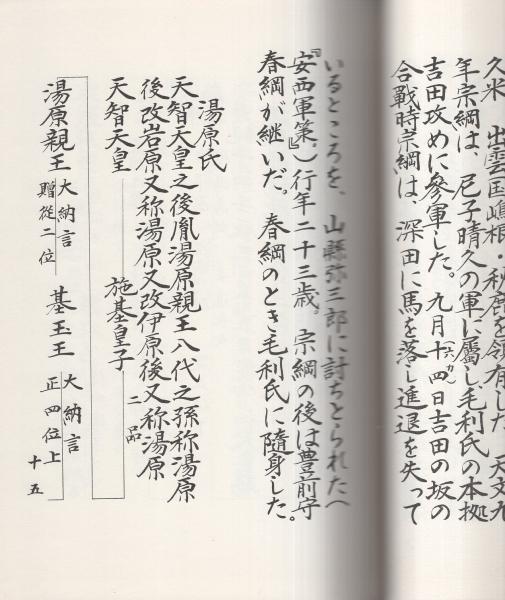 久米 出雲国嶋根・秋鹿を領有した 天文九
年宗綱は、尼子晴久の軍に屬し毛利氏の本拠
吉田攻めに參軍した。九月十(六カ)四日吉田の坂の
合戰時宗綱は、深田に馬を落し進退を失って
いるところを、山縣弥三郎に討ちとられた(
『安西軍策』)行年二十三歳。宗綱の後は豊前守
春綱が継いだ。春綱のとき毛利氏に隨身した。
湯原氏
天智天皇之後胤湯原親王八代之孫称湯原
後改岩原又称湯原又改伊原後又称湯原
天智天皇 施基皇子 二品
湯原親王 大納言 贈從二位 基玉王 大納言 正四位上
十五